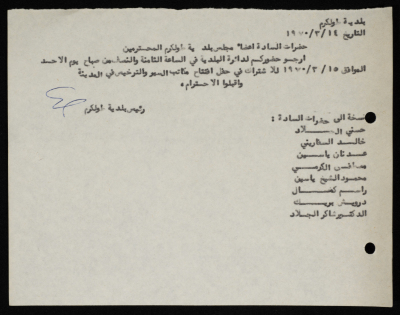 بلدية طولكرم
التاريخ ١٤/٣/١٩٧٠
حضرات السادة اعضاء مجلس بلدية طولكرم المحترمين
ارجو حضوركم لدائرة البلدية في الساعة الثامنة والنصف من صباح يوم الاحد
الموافق ١٥/٣/١٩٧٠ للاشتراك في حفل افتتاح مكاتب السير والترخيص في المدينة
واقبلوا الاحترام،
رئيس بلدية طولكرم
نسخة الى حضرات السادة :
حسني
خالد
عدنان ياسين
الكرمي
محمود الشيخ ياسين
راسم كمال
درويش
الدكتور شاكر الجلاد